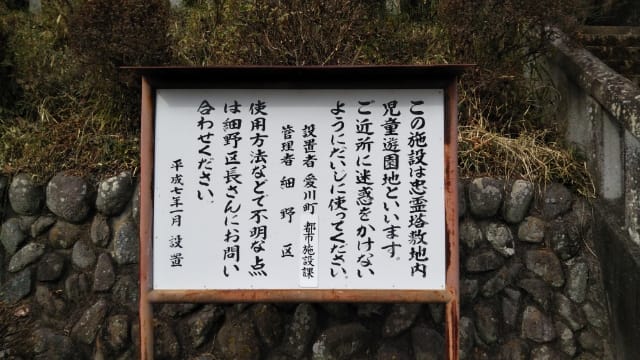 この施設は忠霊塔敷地内
児童遊園地といいます。
ご近所に迷惑をかけない
ようにだいじに使ってください
設置者 愛川町 都市施設課
管理者 細野区
使用方法などで不明な点
は細野区長さんにお問い
合わせください。
平成七年一月 設置